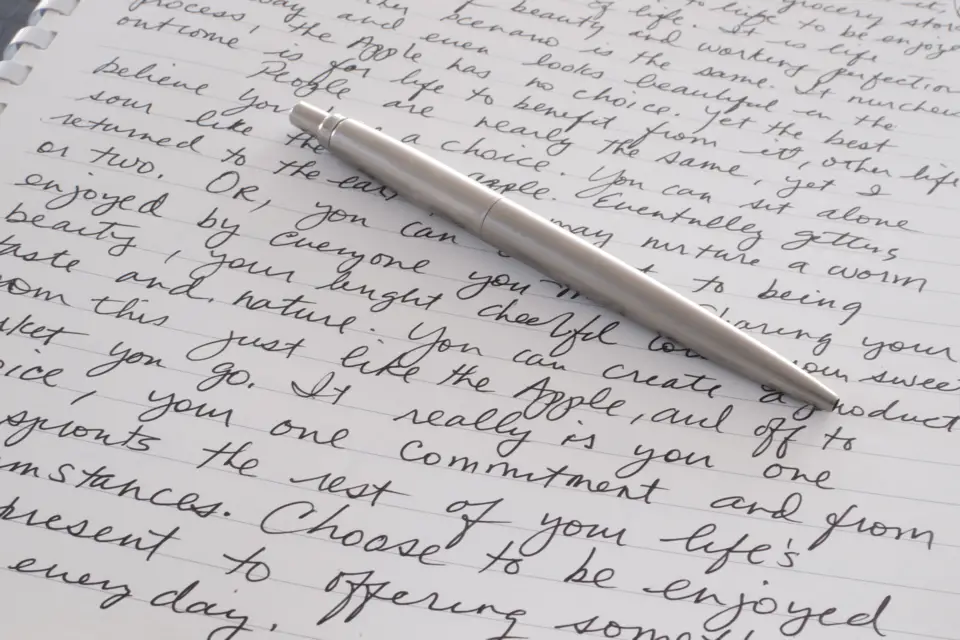 grocery store
to life to be enjoyed
of life. It is life
of beauty and working perfection
scenario is the same. It
way and even looks beautiful in the
process, the Apple has no choice. Yet the best
outcome is for life to benefit from it, other life
People are nearly the same, yet I
believe you a choice. You can sit alone
sour like the apple. Eventually getting
returned to the may nurture a worm
or two. Or, you can to being
enjoyed by everyone you sharing your
beauty, your bright cheerful your sweet
taste and nature. You can create a product
from this just like the Apple, and off to
market you go. It really is you one
choice, your one commitment and from
sprouts the rest of your life's
circumstances. Choose to be enjoyed
present to offering
every day.